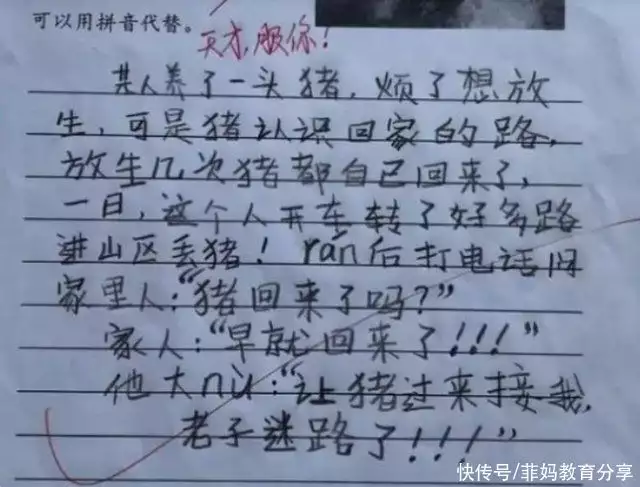 可以用拼音代替。
天才，服你！
某人养了一头猪，烦了想放
生，可是猪认识回家的路，
放生几次猪都自己回来了，
一日，这个人开车转了好多路
进山区丢猪！rán后打电话问
家里人：“猪回来了吗？”
家人：“早就回来了！！！”
他大nù：“让猪过来接我，
老子迷路了！！！”
快传号/菲妈教育分享